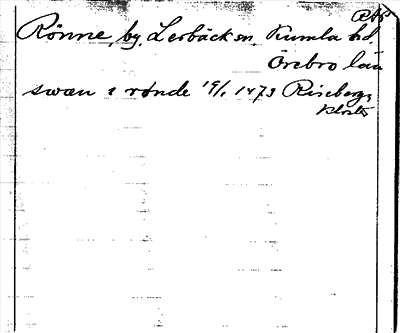 Rönne, by, Lerbäck sn. Kumla hd.
Örebro län
swæn i rønde 19/1 1473 Riseberga
kloster